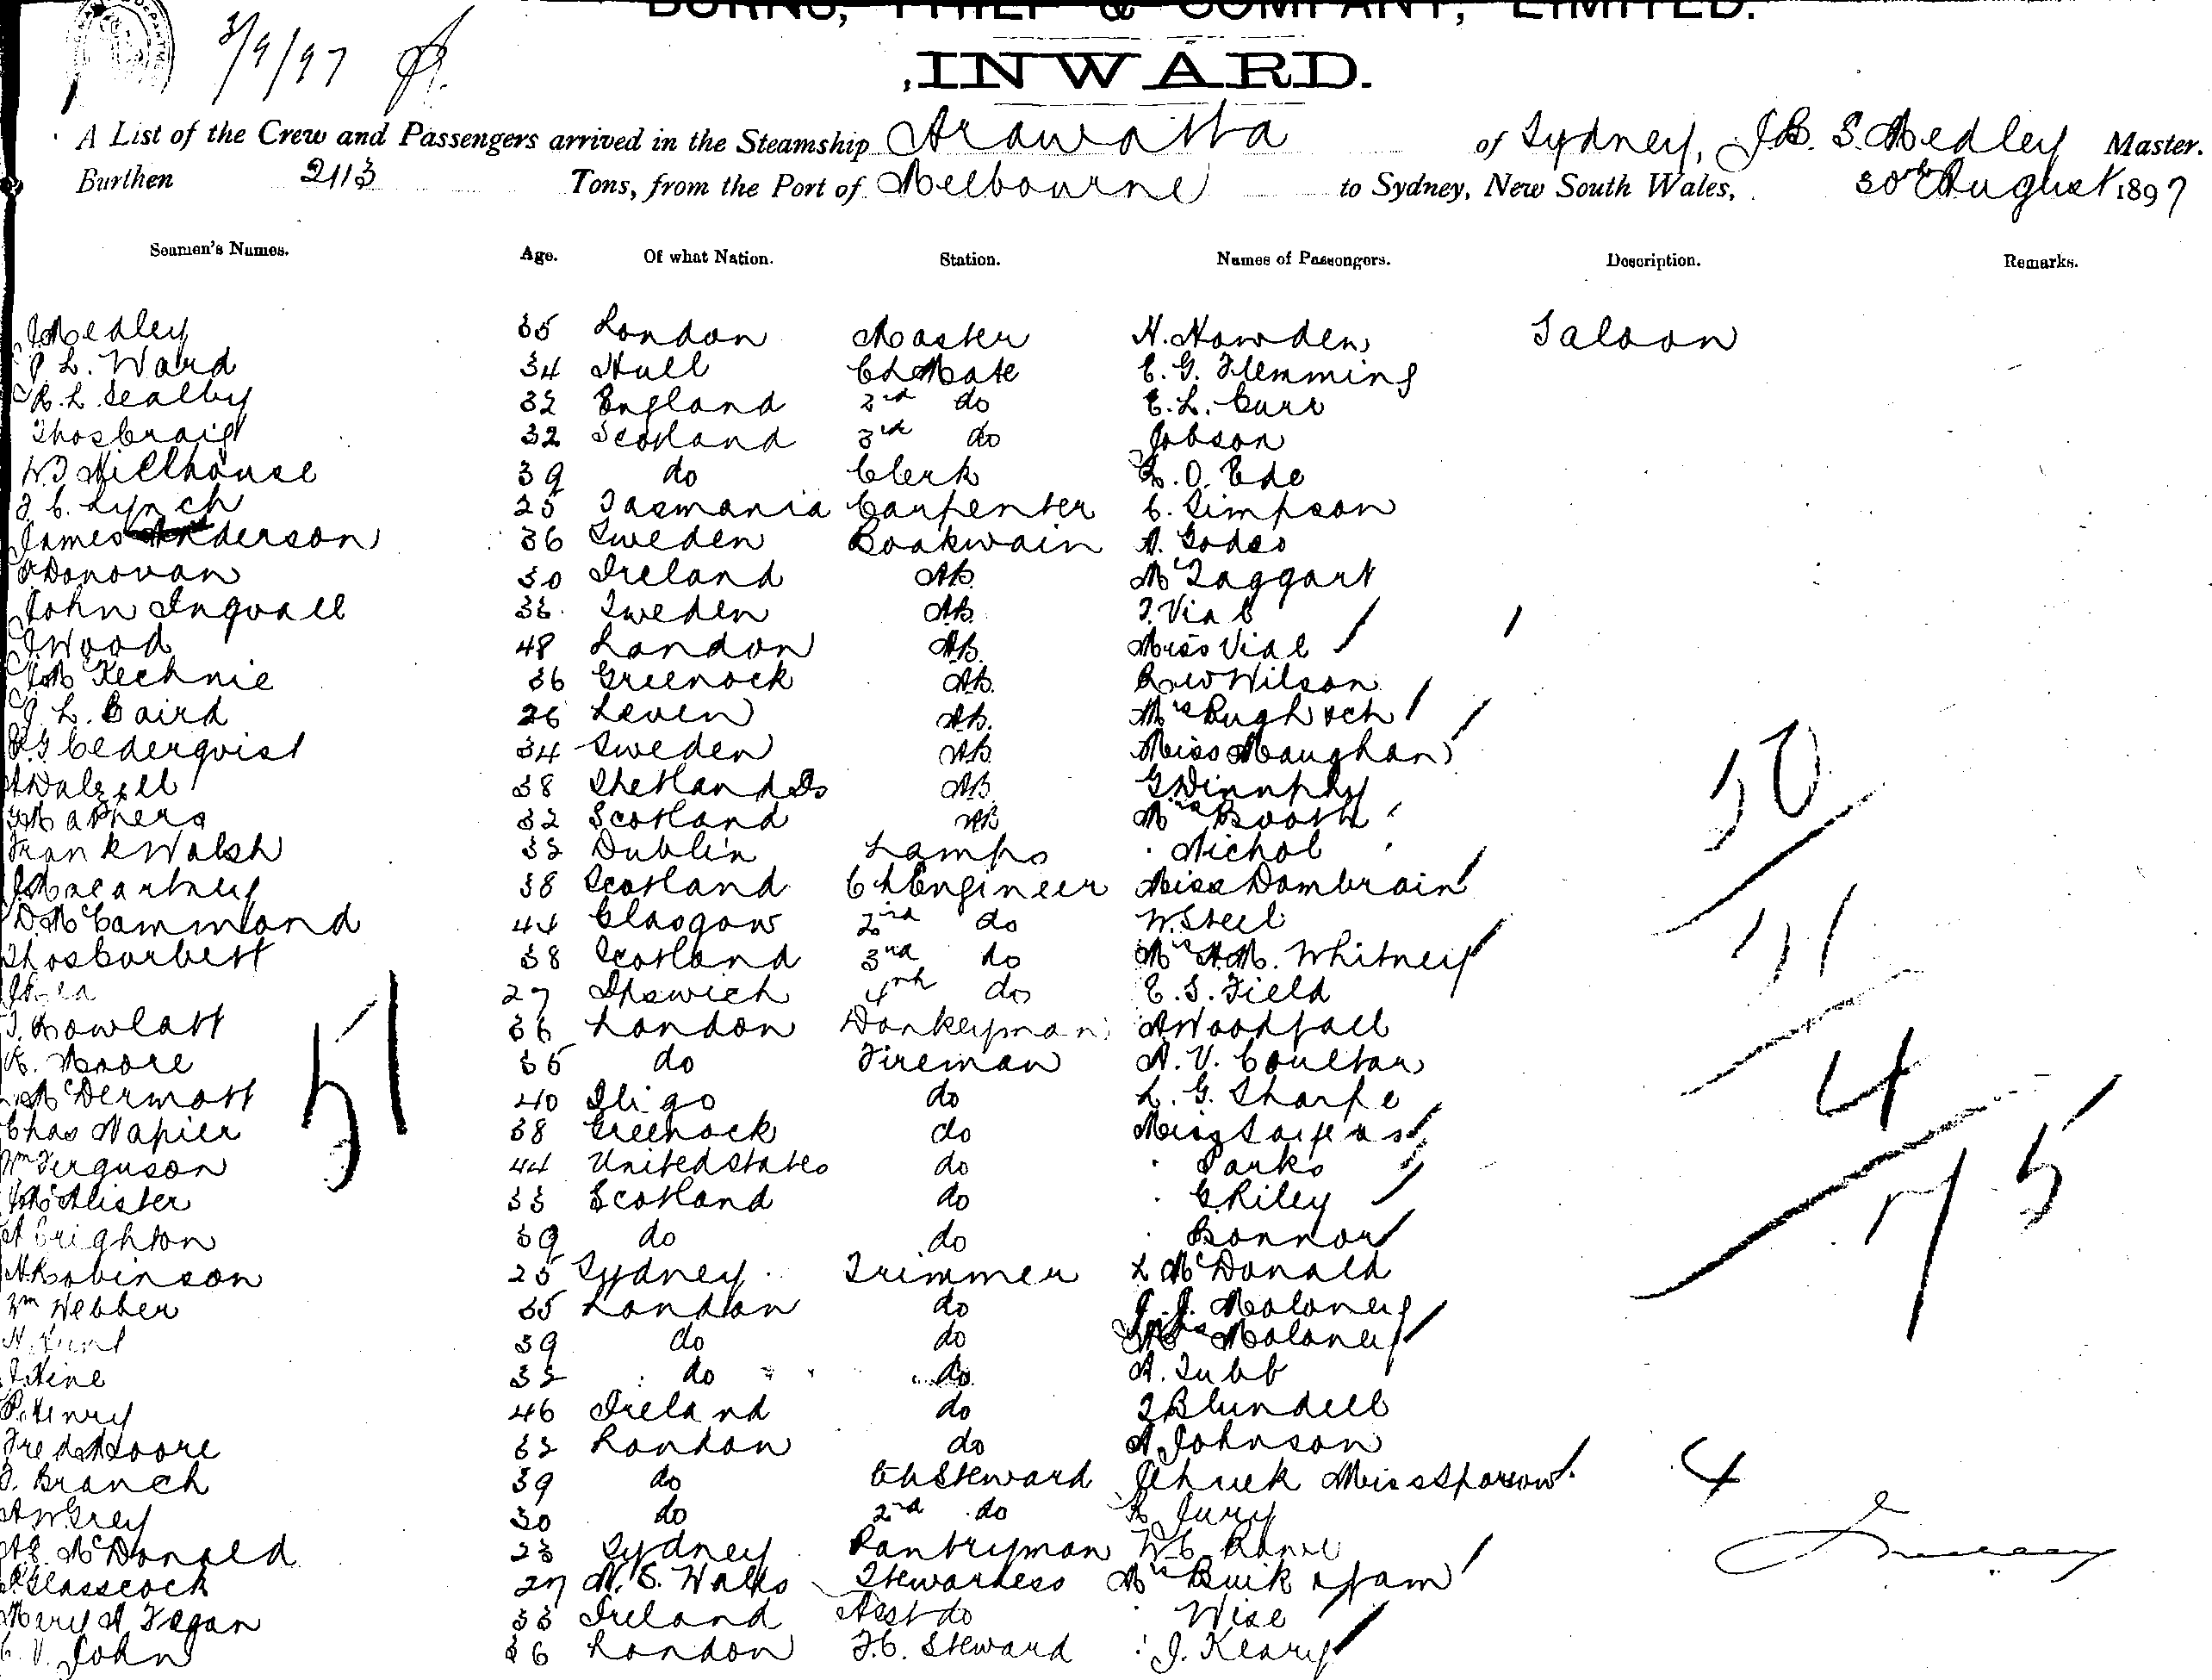 BURNS, PHILP & COMPANY, LIMITED.
3/9/97
INWARD.
A List of the Crew and Passengers arrived in the Steamship Arawatta of Sydney, J.B. S. Medley Master.
Burthen 2113 Tons, from the Port of Melbourne to Sydney, New South Wales, 30th August 1897
Seamen's Names. Age. Of what Nation. Station. Names of Passengers. Description. Remarks.
J Medley 35 London Master H. Howden Saloon
P L. Ward 34 Hull Ch Mate E. G. Flemming
R. L. Sealby 32 England 2nd do E. L. Curr
Thos Craig 32 Scotland 3rd do Jobson
W. J Hillhouse 39 do Clerk L. O. Ede
J C. Lynch 25 Tasmania Carpenter C. Simpson
James Anderson 36 Sweden Boatswain A.
O'Donovan 30 Ireland AB. McTaggart
John Ingvall 36 Sweden AB. J. Vial
J Wood 48 London AB. Miss Vial
J McKechnie 36 Greenock AB. Rev Wilson
J L. Baird 26 Leven AB. Mrs
Cederqvist 34 Sweden AB Miss Maughan
A Dalzell 38 Shetland Is AB G Dinnphy
G Mathers 32 Scotland AB Mrs Booth
Frank Walsh 32 Dublin Lamps " Nichol
J Macartney 38 Scotland Ch Engineer Miss Dombrain
D. McCammond 44 Glasgow 2nd do W. Steel
Thos Corbett 38 Scotland 3rd do Mrs A. M. Whitney
27 Ipswich 4th do E. S. Field
J. Rowlatt 36 London Donkeyman A Woodfall
Moore 35 do Fireman A. V. Coultar
McDermott 40 Sligo do L. G. Sharpe
Chas Napier 38 Greenock do Miss
Wm Ferguson 44 United States do " Parks
McAlister 33 Scotland do " C Riley
A Crighton 39 do do " Bonnor
H Robinson 25 Sydney Trimmer L McDonald
Wm Webber 35 London do J. J. Moloney
H. Hunt 39 do do Mrs Moloney
J. Hine 32 do do A. Tubb
P. Henry 46 Ireland do J Blundell
Fred Moore 32 London do A Johnson
J. Branch 39 do Ch Steward Miss Sparrow
A W Grey 30 do 2nd do Jury
A. E. McDonald 23 Sydney Pantryman W. C.
Glasscock 27 N. S. Wales Stewardess Mrs Buik
Mary A Fegan 33 Ireland Asst do " Wise
C. V. John 36 London F.C. Steward " J. Keary
51
50
11
4
75
4